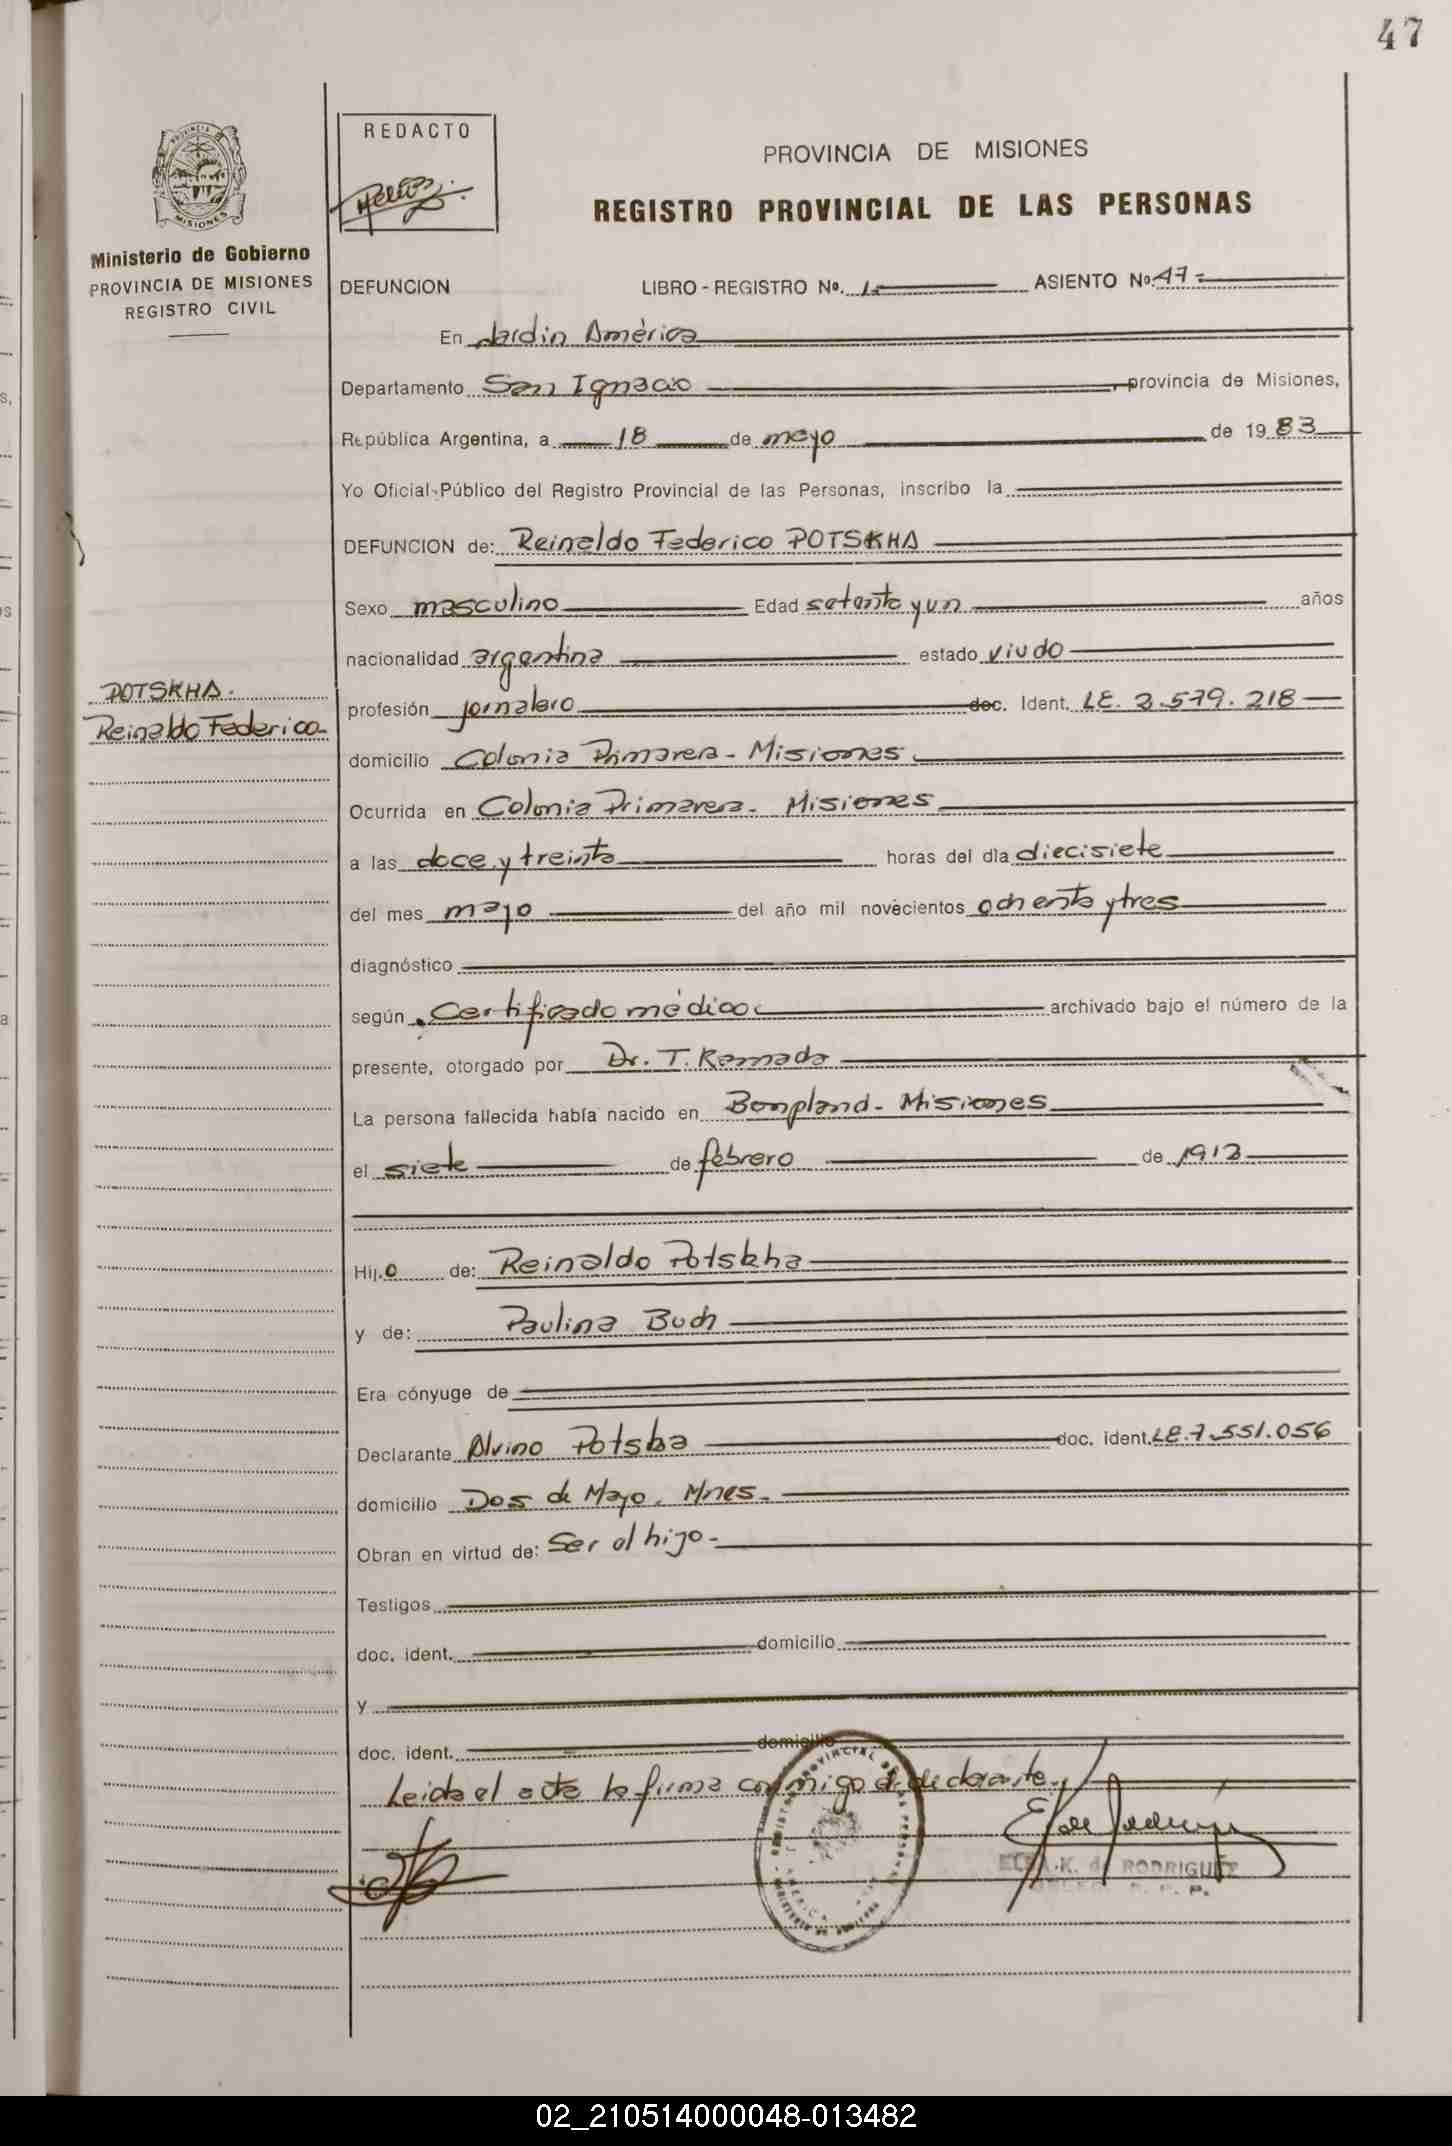 47
PROVINCIA
MISIONES
Ministerio de Gobierno
PROVINCIA DE MISIONES
REGISTRO CIVIL
REDACTO
PROVINCIA DE MISIONES
REGISTRO PROVINCIAL DE LAS PERSONAS
DEFUNCION LIBRO-REGISTRO No. 1 ASIENTO No. 47
En Jardín América
Departamento San Ignacio, provincia de Misiones,
República Argentina, a 18 de mayo de 1983
Yo Oficial Público del Registro Provincial de las Personas, inscribo la
DEFUNCION de: Reinaldo Federico POTSKHA
Sexo masculino Edad setenta y un años
nacionalidad argentina estado viudo
POTSKHA.
Reinaldo Federico
profesión jornalero doc. Ident. LE. 3.579.218
domicilio Colonia Primavera - Misiones
Ocurrida en Colonia Primavera - Misiones
a las doce y treinta horas del día diecisiete
del mes mayo del año mil novecientos ochenta y tres
diagnóstico
según Certificado médico archivado bajo el número de la
presente, otorgado por Dr. T. Ramada
La persona fallecida había nacido en Bonpland - Misiones
el siete de febrero de 1912
Hijo de: Reinaldo Potskha
y de: Paulina Buch
Era cónyuge de
Declarante Alvino Potska doc. ident. LE. 7.551.056
domicilio Dos de Mayo, Mnes.
Obran en virtud de: Ser el hijo.
Testigos
doc. ident. domicilio
y
doc. ident. domicilio
Leída el acta la firma conmigo el declarante.
ELBA K. de RODRIGUEZ
02_210514000048-013482